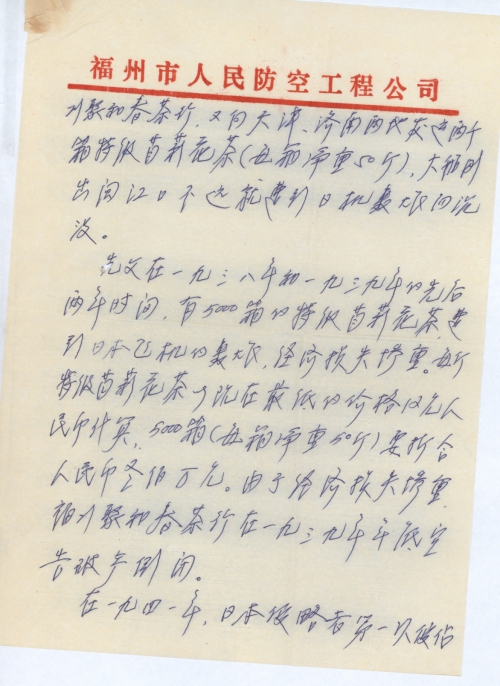 福州市人民防空工程公司
刘聚和春茶行,又向天津、济南两地发运两千
箱特级茉莉花茶(每箱净重50斤),大船刚
出闽江口不远就遭到日机轰炸而沉
没。
先父在一九三八年和一九三九年的先后
两年时间,有5000箱的特级茉莉花茶,遭
到日本飞机的轰炸,经济损失惨重。每斤
特级茉莉花茶,现在最低的价格12元人
民币计算,5000箱(每箱净重50斤)要折合
人民币叁佰万元。由于经济损失惨重,
刘聚和春茶行在一九三九年年底宣
告破产倒闭。
在一九四一年,日本侵略者第一次侵占